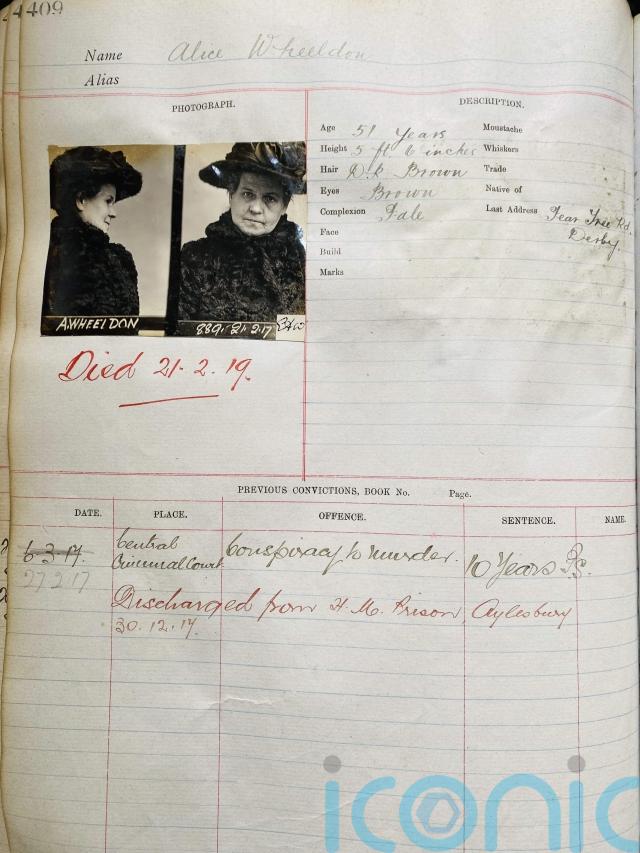 4409
Name Alice Wheeldon
Alias
PHOTOGRAPH.
A.WHEELDON
889. 21 2.17
Died 21. 2. 19.
DESCRIPTION.
Age 51 Years Moustache
Height 5 ft. 6 inches Whiskers
Hair D.k Brown Trade
Eyes Brown Native of
Complexion Pale Last Address Pear Tree Rd.
Derby.
Face
Build
Marks
PREVIOUS CONVICTIONS, BOOK No. Page.
DATE. PLACE. OFFENCE. SENTENCE. NAME.
6-3-17. Central Criminal Court Conspiracy to Murder. 10 Years P.S.
27 2 17
Discharged from H. M. Prison Aylesbury
30.12.17.
iconic